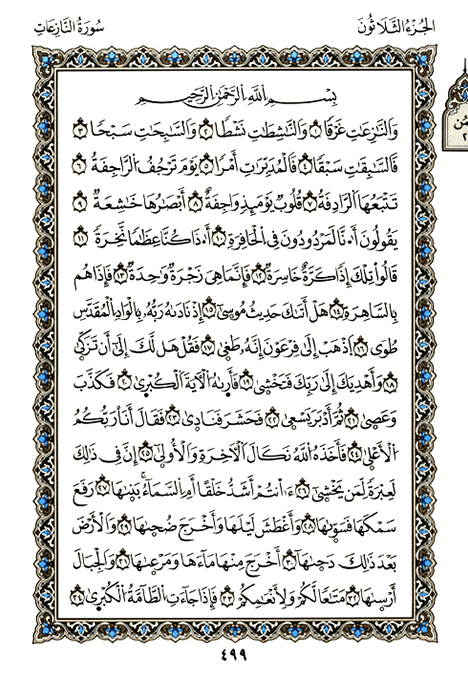 الجزء الثلاثون
سورة النازعات
بِسْمِ اللَّهِ الرَّحْمَٰنِ الرَّحِيمِ
وَالنَّازِعَاتِ غَرْقًا ١ وَالنَّاشِطَاتِ نَشْطًا ٢ وَالسَّابِحَاتِ سَبْحًا ٣
فَالسَّابِقَاتِ سَبْقًا ٤ فَالْمُدَبِّرَاتِ أَمْرًا ٥ يَوْمَ تَرْجُفُ الرَّاجِفَةُ ٦
تَتْبَعُهَا الرَّادِفَةُ ٧ قُلُوبٌ يَوْمَئِذٍ وَاجِفَةٌ ٨ أَبْصَارُهَا خَاشِعَةٌ ٩
يَقُولُونَ أَءِنَّا لَمَرْدُودُونَ فِي الْحَافِرَةِ ١٠ أَءِذَا كُنَّا عِظَامًا نَّخِرَةً ١١
قَالُوا تِلْكَ إِذًا كَرَّةٌ خَاسِرَةٌ ١٢ فَإِنَّمَا هِيَ زَجْرَةٌ وَاحِدَةٌ ١٣ فَإِذَا هُم
بِالسَّاهِرَةِ ١٤ هَلْ أَتَاكَ حَدِيثُ مُوسَىٰ ١٥ إِذْ نَادَاهُ رَبُّهُ بِالْوَادِ الْمُقَدَّسِ
طُوًى ١٦ اذْهَبْ إِلَىٰ فِرْعَوْنَ إِنَّهُ طَغَىٰ ١٧ فَقُلْ هَل لَّكَ إِلَىٰ أَن تَزَكَّىٰ
١٨ وَأَهْدِيَكَ إِلَىٰ رَبِّكَ فَتَخْشَىٰ ١٩ فَأَرَاهُ الْآيَةَ الْكُبْرَىٰ ٢٠ فَكَذَّبَ
وَعَصَىٰ ٢١ ثُمَّ أَدْبَرَ يَسْعَىٰ ٢٢ فَحَشَرَ فَنَادَىٰ ٢٣ فَقَالَ أَنَا رَبُّكُمُ
الْأَعْلَىٰ ٢٤ فَأَخَذَهُ اللَّهُ نَكَالَ الْآخِرَةِ وَالْأُولَىٰ ٢٥ إِنَّ فِي ذَٰلِكَ
لَعِبْرَةً لِّمَن يَخْشَىٰ ٢٦ ءَأَنتُمْ أَشَدُّ خَلْقًا أَمِ السَّمَاءُ بَنَاهَا ٢٧ رَفَعَ
سَمْكَهَا فَسَوَّاهَا ٢٨ وَأَغْطَشَ لَيْلَهَا وَأَخْرَجَ ضُحَاهَا ٢٩ وَالْأَرْضَ
بَعْدَ ذَٰلِكَ دَحَاهَا ٣٠ أَخْرَجَ مِنْهَا مَاءَهَا وَمَرْعَاهَا ٣١ وَالْجِبَالَ
أَرْسَاهَا ٣٢ مَتَاعًا لَّكُمْ وَلِأَنْعَامِكُمْ ٣٣ فَإِذَا جَاءَتِ الطَّامَّةُ الْكُبْرَىٰ ٣٤
٤٩٩